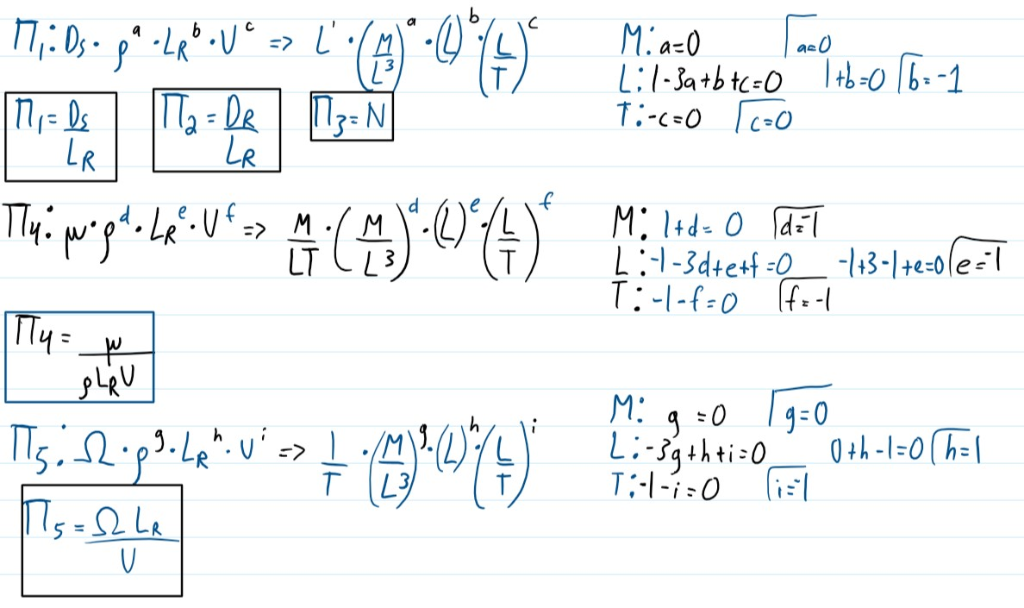 Π₁: Ds · ρ^a · L_R^b · U^c => L^1 · (M/L³)^a · (L)^b · (L/T)^c
M: a=0 a=0
L: 1-3a+b+c=0 1+b=0 b=-1
T: -c=0 c=0
Π₁ = Ds/L_R Π₂ = D_R/L_R Π₃ = N
Π4: μ · ρ^d · L_R^e · U^f => M/LT · (M/L³)^d · (L)^e · (L/T)^f
M: 1+d=0 d=-1
L: -1-3d+e+f=0 -1+3-1+e=0 e=-1
T: -1-f=0 f=-1
Π4 = μ/ρL_RU
Π5: Ω · ρ^g · L_R^h · U^i => 1/T · (M/L³)^g · (L)^h · (L/T)^i
M: g=0 g=0
L: -3g+h+i=0 0+h-1=0 h=1
T: -1-i=0 i=-1
Π5 = Ω L_R/U